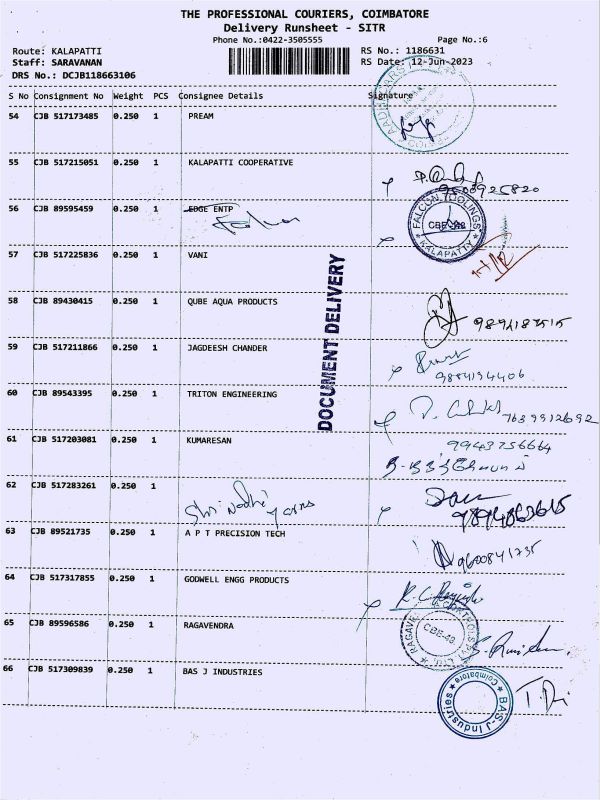 THE PROFESSIONAL COURIERS, COIMBATORE
Delivery Runsheet - SITR
Phone No.:0422-3505555 Page No.:6
Route: KALAPATTI RS No.: 1186631
Staff: SARAVANAN RS Date: 12-Jun-2023
DRS No.: DCJB118663106
S No Consignment No Weight PCS Consignee Details Signature
54 CJB 517173485 0.250 1 PREAM
55 CJB 517215051 0.250 1 KALAPATTI COOPERATIVE
56 CJB 89595459 0.250 1 EDGE ENTP
FALCON TOOLINGS
CBE-48
KALAPATTY
57 CJB 517225836 0.250 1 VANI
DOCUMENT DELIVERY
58 CJB 89430415 0.250 1 QUBE AQUA PRODUCTS
59 CJB 517211866 0.250 1 JAGDEESH CHANDER
9884194406
60 CJB 89543395 0.250 1 TRITON ENGINEERING
7639912692
61 CJB 517203081 0.250 1 KUMARESAN
9943756664
62 CJB 517283261 0.250 1
Shri Nadhi Yarns
63 CJB 89521735 0.250 1 A P T PRECISION TECH
9600841735
64 CJB 517317855 0.250 1 GODWELL ENGG PRODUCTS
65 CJB 89596586 0.250 1 RAGAVENDRA
CBE-48
66 CJB 517309839 0.250 1 BAS J INDUSTRIES
BAS-J Industries
Coimbatore